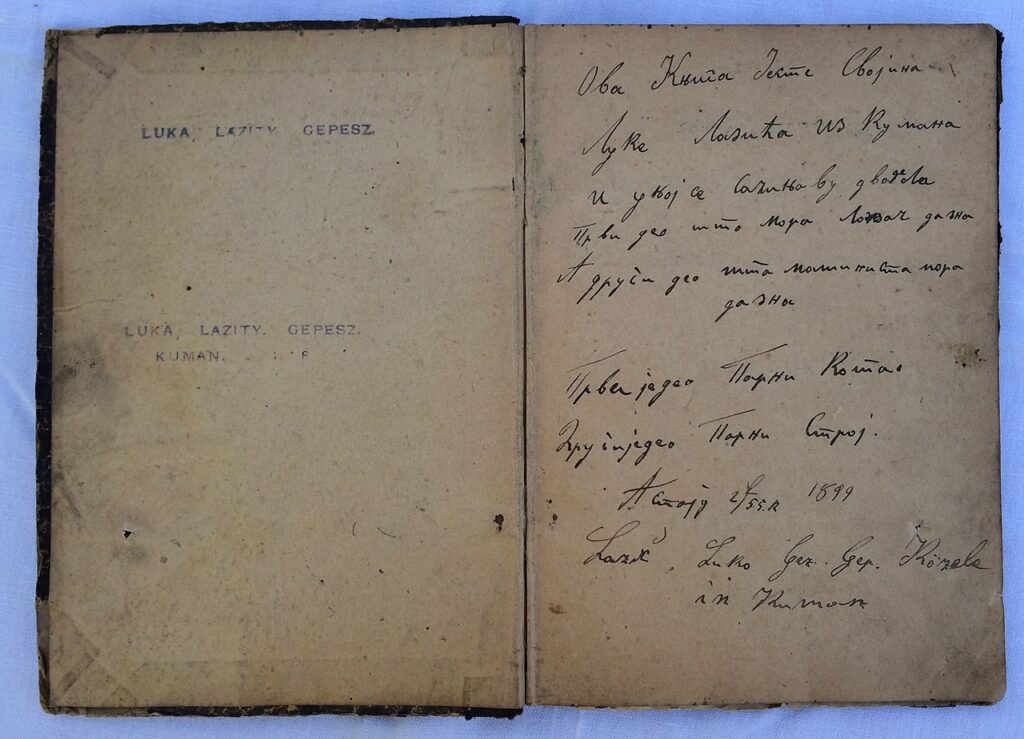 LUKA, LAZITY. GEPESZ.
LUKA, LAZITY. GEPESZ.
KUMAN.
Ова Книга Јесте Својина
Луке Лазића из Кумана
и у њој се Сачињаву два дела
Први део што мора Ложач да зна
А други део шта машиниста мора
да зна
Први једео Парни Котао
Други једео Парни Строј.
А стоји 2f 55.к 1899
Lazić, Luko Gez. Gep.
in Kuman